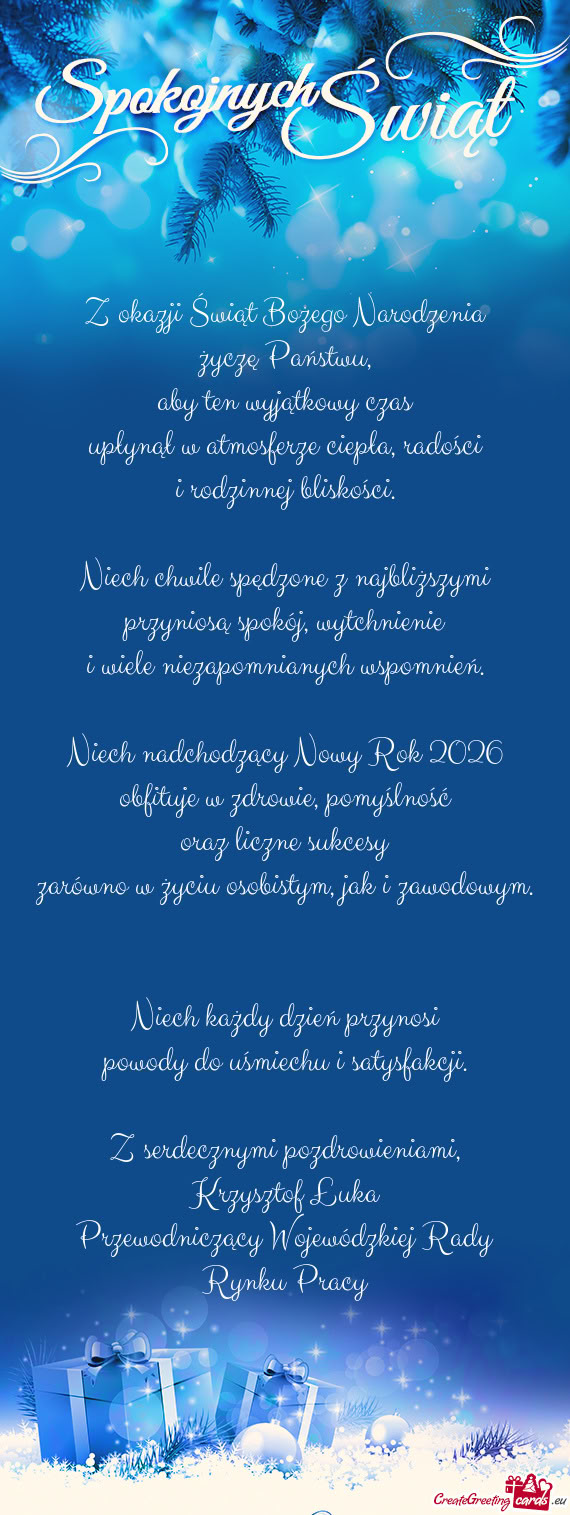 Spokojnych Świąt
Z okazji Świąt Bożego Narodzenia
życzę Państwu,
aby ten wyjątkowy czas
upłynął w atmosferze ciepła, radości
i rodzinnej bliskości.
Niech chwile spędzone z najbliższymi
przyniosą spokój, wytchnienie
i wiele niezapomnianych wspomnień.
Niech nadchodzący Nowy Rok 2026
obfituje w zdrowie, pomyślność
oraz liczne sukcesy
zarówno w życiu osobistym, jak i zawodowym.
Niech każdy dzień przynosi
powody do uśmiechu i satysfakcji.
Z serdecznymi pozdrowieniami,
Krzysztof Łuka
Przewodniczący Wojewódzkiej Rady
Rynku Pracy
CreateGreeting cards .eu